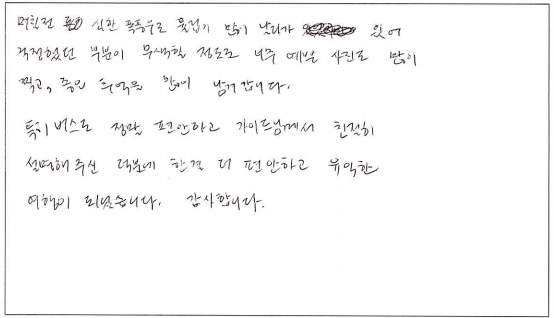 며칠전 심한 폭풍우로 물집이 많이 난리가 있어
걱정했던 부분이 무색할 정도로 너무 예쁜 사진도 많이
찍고, 좋은 추억을 한아름 남겨갑니다.
특히 버스도 정말 편안하고 가이드님께서 친절히
설명해 주신 덕분에 한결 더 편안하고 유익한
여행이 되었습니다. 감사합니다.